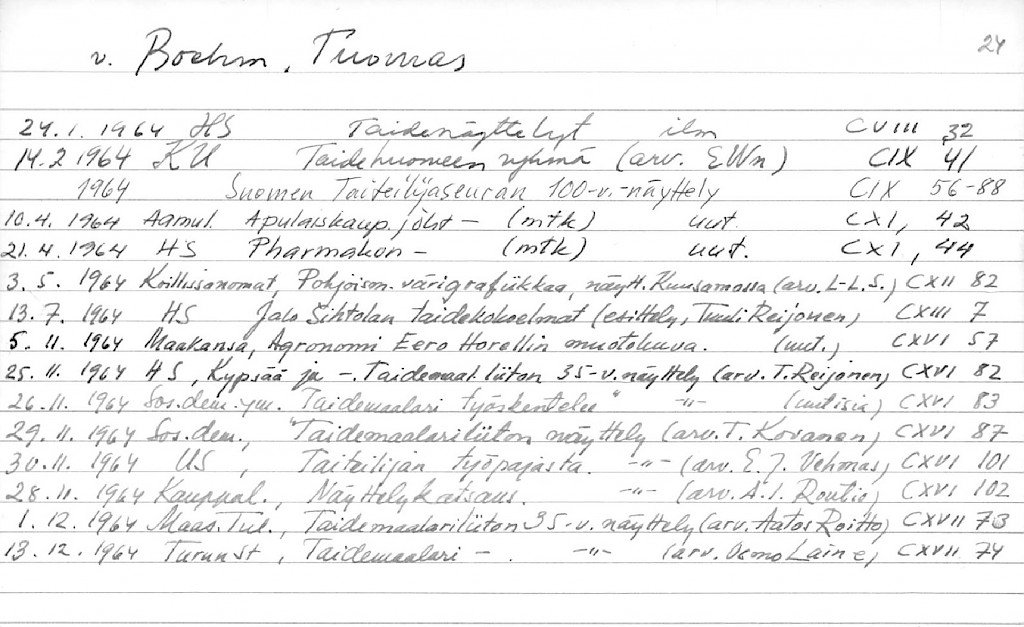 24
v. Boehm, Tuomas
24.1.1964 HS Taidenäyttelyt ilm CVIII 32
14.2 1964 KU Taidehuoneen ryhmä (arv. EWn) CIX 41
1964 Suomen Taiteilijaseuran 100-v.-näyttely CIX 56-88
10.4. 1964 Aamul. Apulaiskaup.joht — (mtk) uut. CXI, 42
21.4. 1964 HS Pharmakon — (mtk) uut. CXI, 44
3.5. 1964 Koillissanomat, Pohjoism. värigrafiikkaa, näytt. Kuusamossa (arv. L-L.S.) CXII 82
13.7. 1964 HS Jalo Sihtolan taidekokoelmat (esittely, Tuuli Reijonen) CXIII 7
5.11. 1964 Maakansa, Agronomi Eero Horellin muotokuva. (uut.) CXVI 57
25.11. 1964 HS, Kypsää ja —. Taidemaal.liiton 35-v. näyttely (arv. T. Reijonen) CXVI 82
26.11. 1964 Sos.dem. ym. Taidemaalari työskentelee" —"— (uutisia) CXVI 83
29.11. 1964 Sos.dem., "Taidemaalariliiton näyttely (arv. T. Kovanen) CXVI 87
30.11. 1964 US, Taiteilijan työpajasta. —"— (arv. E.J. Vehmas) CXVI 101
28.11. 1964 Kauppal., Näyttelykatsaus. —"— (arv. A.I. Routio) CXVI 102
1.12. 1964 Maas.Tul., Taidemaalariliiton 35-v. näyttely (arv. Aatos Roitto) CXVII 73
13.12. 1964 TurunSt, Taidemaalari —. —"— (arv. Osmo Laine) CXVII 74